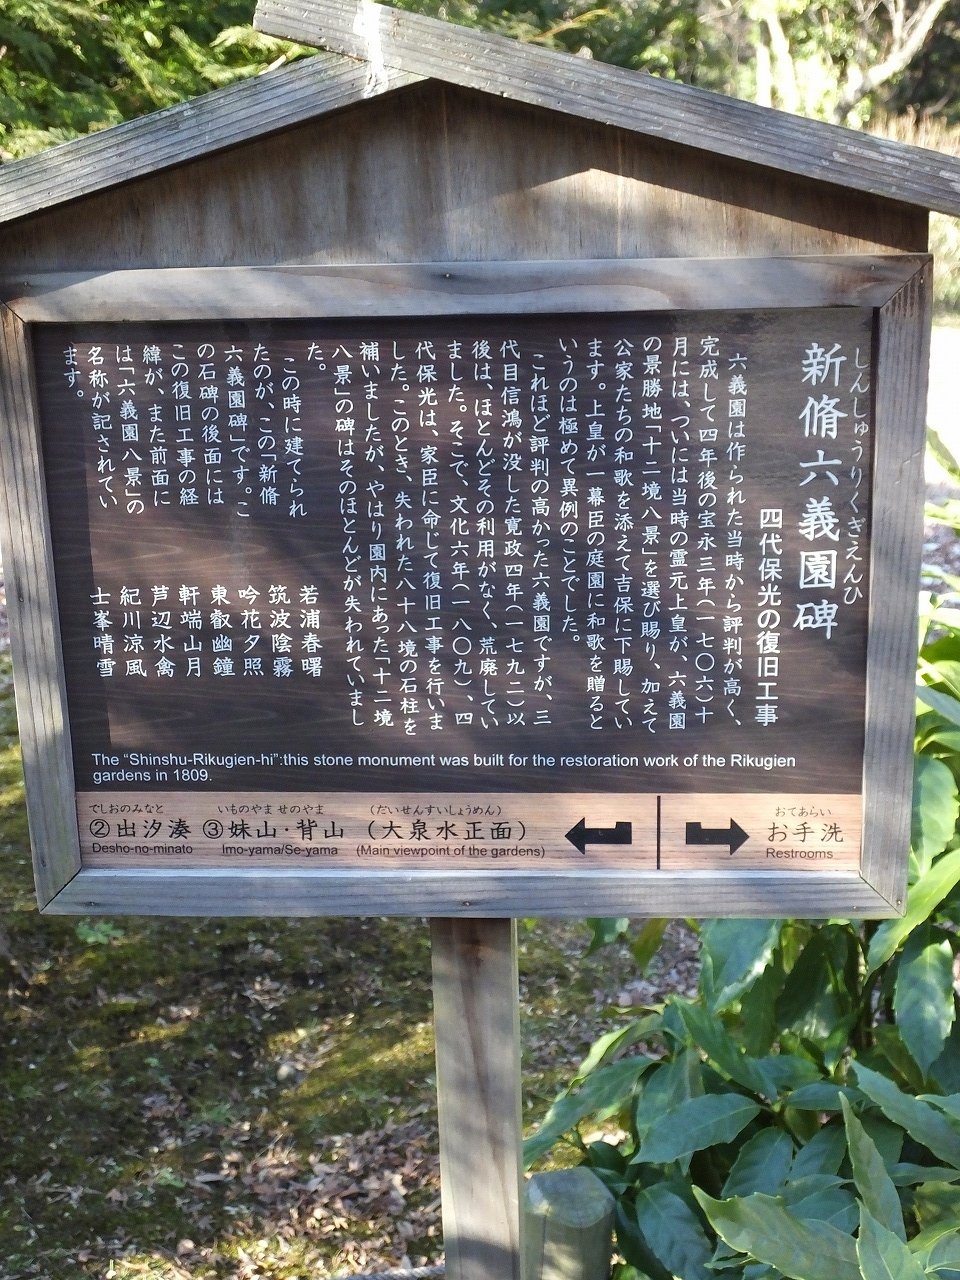 しんしゅうりくぎえんひ
新脩六義園碑
四代保光の復旧工事
六義園は作られた当時から評判が高く、
完成して四年後の宝永三年(一七〇六)十
月には、ついには当時の霊元上皇が、六義園
の景勝地「十二境八景」を選び賜り、加えて
公家たちの和歌を添えて吉保に下賜してい
ます。上皇が一幕臣の庭園に和歌を贈ると
いうのは極めて異例のことでした。
これほど評判の高かった六義園ですが、三
代目信鴻が没した寛政四年(一七九二)以
後は、ほとんどその利用がなく、荒廃してい
ました。そこで、文化六年(一八〇九)、四
代保光は、家臣に命じて復旧工事を行いま
した。このとき、失われた八十八境の石柱を
補いましたが、やはり園内にあった「十二境
八景」の碑はそのほとんどが失われていまし
た。
この時に建てられ
たのが、この「新脩
六義園碑」です。こ
の石碑の後面には
この復旧工事の経
緯が、また前面に
は「六義園八景」の
名称が記されてい
ます。
若浦春曙
筑波陰霧
吟花夕照
東叡幽鐘
軒端山月
芦辺水禽
紀川涼風
士峯晴雪
The “Shinshu-Rikugien-hi”:this stone monument was built for the restoration work of the Rikugien
gardens in 1809.
でしおのみなと
②出汐湊
Desho-no-minato
いものやま せのやま
③妹山・背山
Imo-yama/Se-yama
(だいせんすいしょうめん)
(大泉水正面)
(Main viewpoint of the gardens)
おてあらい
お手洗
Restrooms